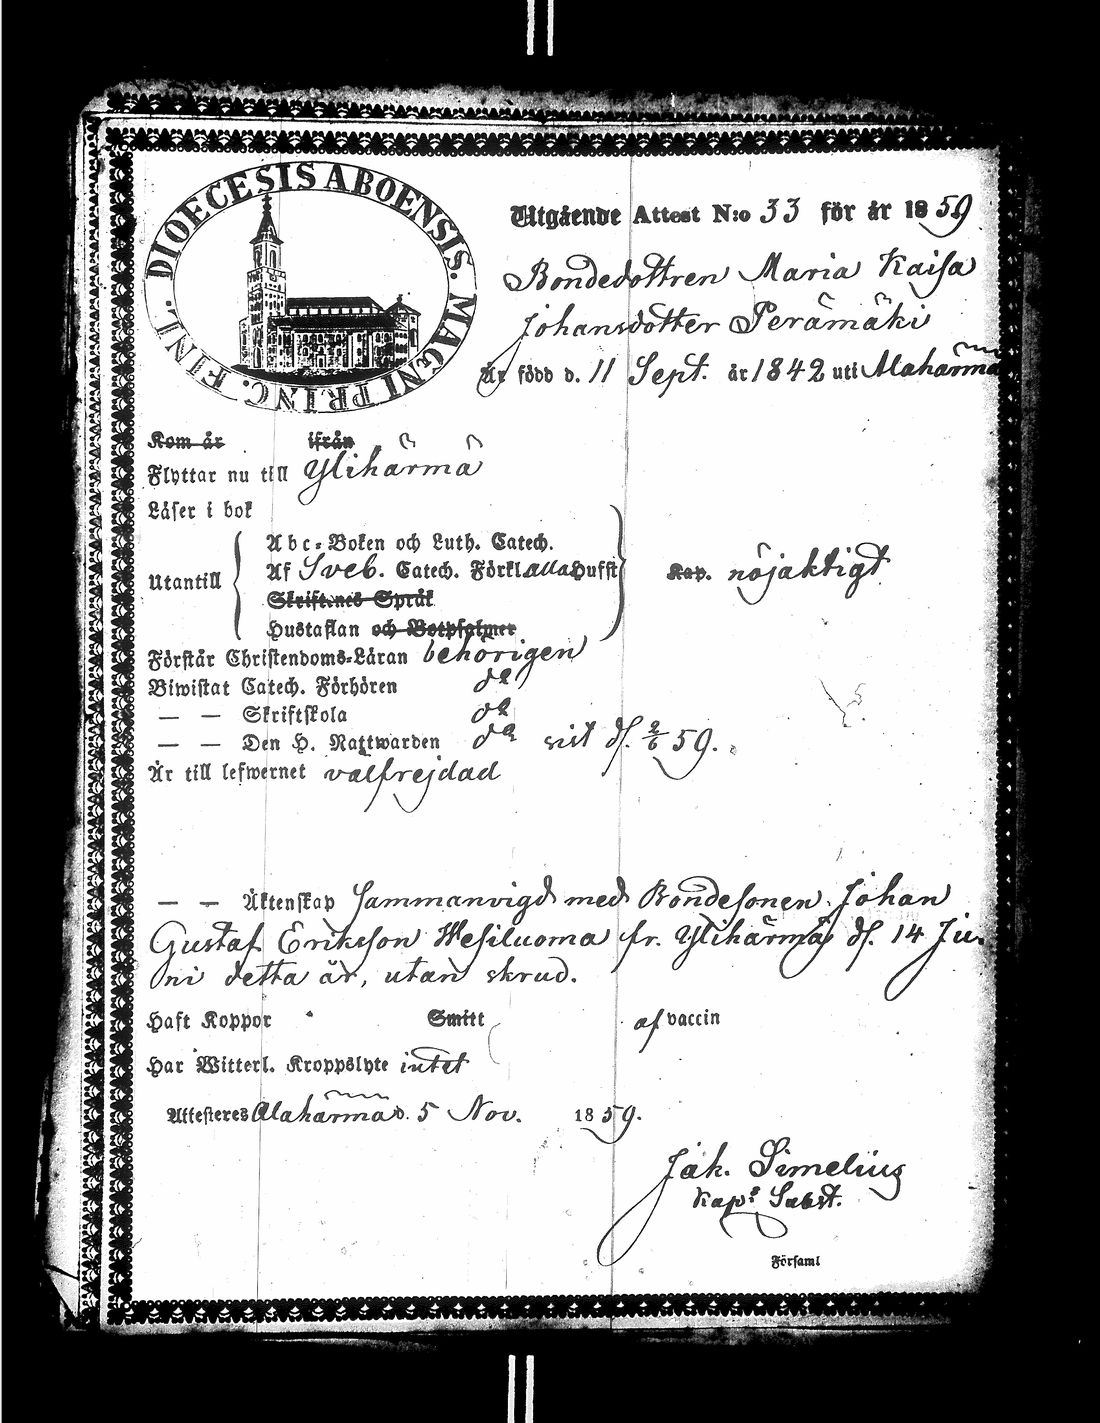 DIOECESIS ABOENSIS. MAGNI PRINC. FINL.
Utgående Attest N:o 33 för år 1859
Bondedottren Maria Kaisa
Johansdotter Perämäki
Är född d. 11 Sept. år 1842 uti Alahärmä
Kom år ifrån
Flyttar nu till Ylihärmä
Läser i bok
Utantill
Abc-Boken och Luth. Catech.
Af Sveb. Catech. Förkl. alla Hufst
Skriftenes Språk
Hustaflan och Botpsalmer
Kap. nöjaktigt
Förstår Christendoms-Läran behörigen
Biwistat Catech. Förhören do
— — Skriftskola do
— — Den H. Nattwarden do sist d. 2/6 59.
Är till lefwernet välfrejdad
— — Äktenskap Sammanvigd med Bondesonen Johan
Gustaf Eriksson Wesiluoma fr. Ylihärmä d. 14 Ju-
ni detta år, utan skrud.
Haft Koppor Smitt af vaccin
Har Witterl. Kroppslyte intet
Attesteres Alahärmä d. 5 Nov. 1859.
Jak. Simelius
Kap: Subst.
Församl